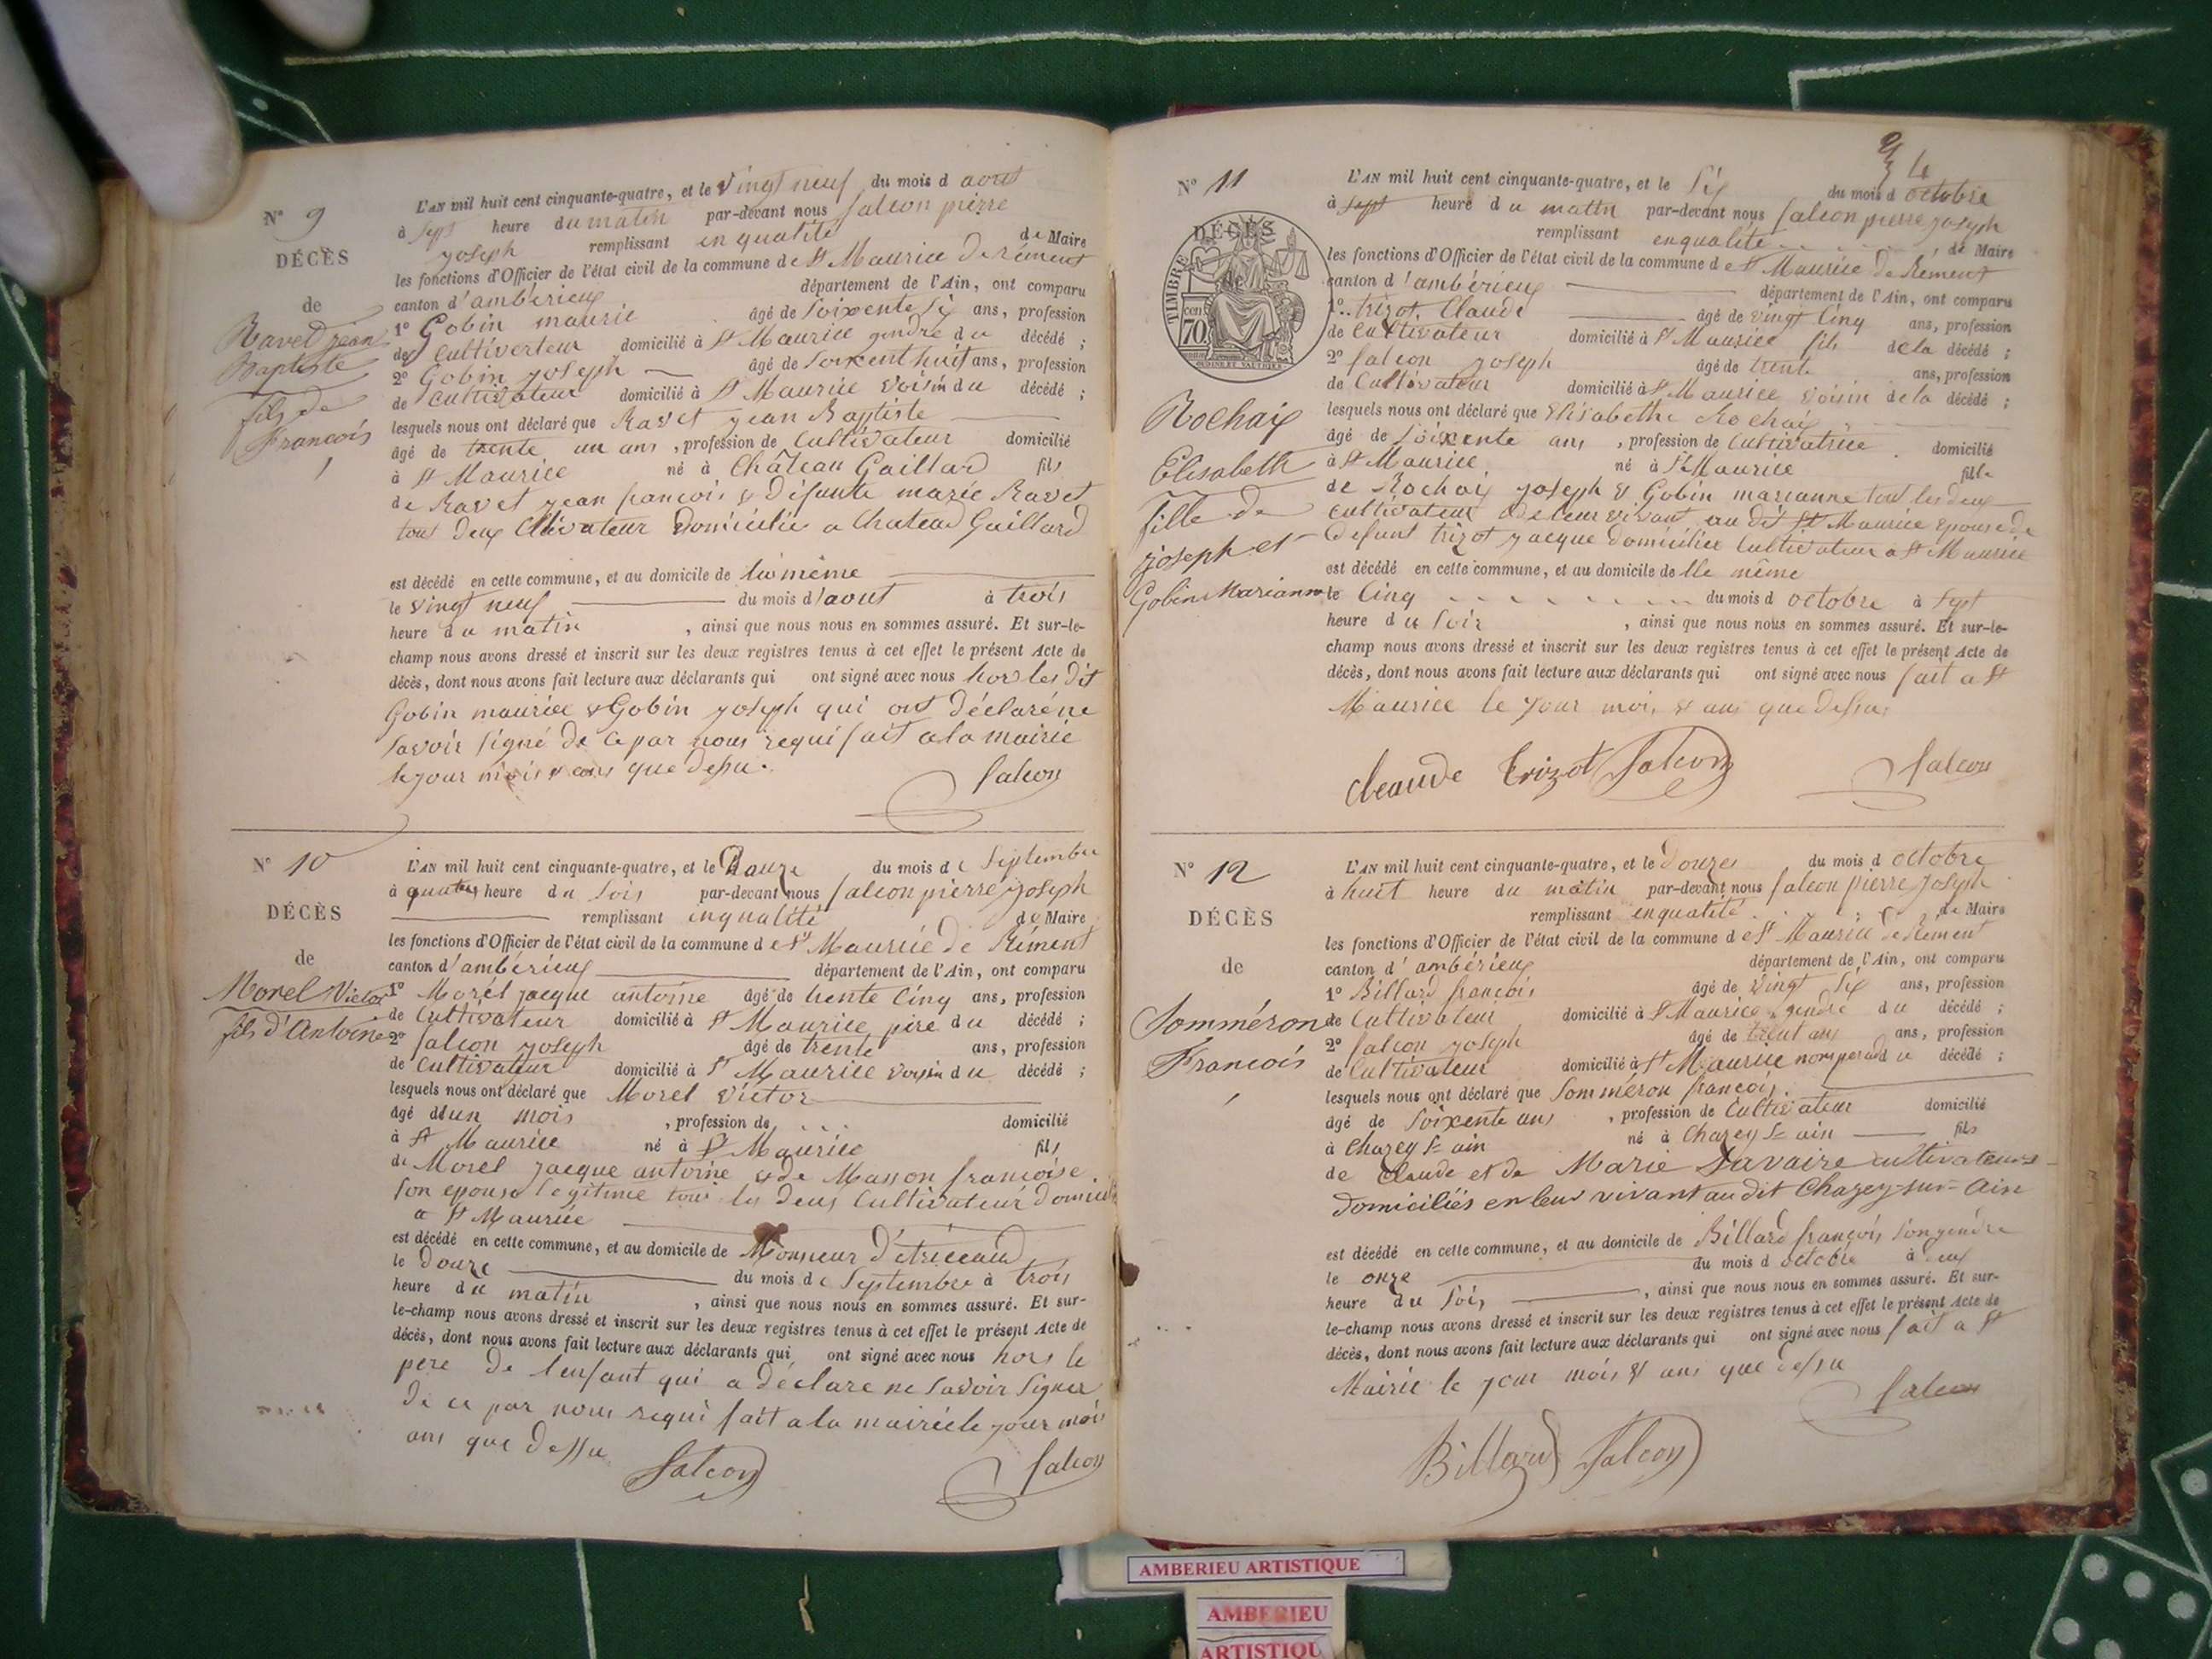 N° 9
DÉCÈS
de
Ravet jean
Baptiste
fils de
Francois
L'AN mil huit cent cinquante-quatre, et le vingt neuf du mois d aout
à sept heure du matin par-devant nous falcon pierre
joseph remplissant en qualité de Maire
les fonctions d'Officier de l'état civil de la commune de St Maurice de rément
canton d'ambérieux département de l'Ain, ont comparu
1° Gobin maurie âgé de soixente six ans, profession
de Cultiverteur domicilié à St Maurice gendre du décédé ;
2° Gobin joseph âgé de soixent huit ans, profession
de Cultivateur domicilié à St Maurice voisin du décédé ;
lesquels nous ont déclaré que Ravet jean Baptiste
âgé de trente un ans , profession de Cultivateur domicilié
à St Maurice né à Château Gaillard fils
de Ravet jean francois & défunte marie Ravet
tous deux Cltivateur Domicilie a Chateau Gaillard
est décédé en cette commune, et au domicile de lui même
le vingt neuf du mois d'aout à trois
heure du matin , ainsi que nous nous en sommes assuré. Et sur-le-
champ nous avons dressé et inscrit sur les deux registres tenus à cet effet le présent Acte de
décès, dont nous avons fait lecture aux déclarants qui ont signé avec nous hors les dit
Gobin maurice & Gobin joseph qui ont déclaré ne
savoir signé de ce par nous requi fait a la mairie
le jour mois & ans que dessu.
falcon
N° 10
DÉCÈS
de
Morel Victor
fils d'Antoine
L'AN mil huit cent cinquante-quatre, et le Douze du mois de Septembre
à quatre heure du soir par-devant nous falcon pierre joseph
remplissant en qualité de Maire
les fonctions d'Officier de l'état civil de la commune de St Maurice de Rément
canton d'ambérieux département de l'Ain, ont comparu
1° Morel jacque antoine âgé de trente cinq ans, profession
de Cultivateur domicilié à St Maurice pere du décédé ;
2° falcon joseph âgé de trente ans, profession
de Cultivateur domicilié à St Maurice voisin du décédé ;
lesquels nous ont déclaré que Morel victor
âgé d'un mois , profession de domicilié
à St Maurice né à St Maurice fils
de Morel jacque antoine & de Masson francoise
son epouse legitime tous les deus Cultivateur domicilié
a St Maurice
est décédé en cette commune, et au domicile de Monsieur d'étriceaud
le douze du mois de Septembre à trois
heure du matin , ainsi que nous nous en sommes assuré. Et sur-
le-champ nous avons dressé et inscrit sur les deux registres tenus à cet effet le présent Acte de
décès, dont nous avons fait lecture aux déclarants qui ont signé avec nous hors le
pere de lenfant qui a déclare ne savoir signer
de ce par nous requi fait a la mairie le jour mois
ans que dessu
falcon falcon
N° 11
DÉCÈS
de
TIMBRE
cen
70
Rochaix
Elisabeth
fille de
joseph et
Gobin Marianne
L'AN mil huit cent cinquante-quatre, et le six du mois d octobre
à sept heure du matin par-devant nous falcon pierre joseph
remplissant en qualité de Maire
les fonctions d'Officier de l'état civil de la commune de St Maurice de Rément
canton d'ambérieux département de l'Ain, ont comparu
1° trizot Claude âgé de vingt cinq ans, profession
de Cultivateur domicilié à St Maurice fils de la décédé ;
2° falcon joseph âgé de trente ans, profession
de Cultivateur domicilié à St Maurice voisin de la décédé ;
lesquels nous ont déclaré que Elisabethe Rochaix
âgé de soixente ans , profession de Cultivatrice domicilié
à St Maurice né à St Maurice fille
de Rochaix joseph & Gobin marianne tout les deux
cultivateur de leur vivant au dit St Maurice epouse de
defunt trizot jacque domicilice Cultivateur a St Maurice
est décédé en cette commune, et au domicile de lle même
le cinq du mois d octobre à sept
heure du soir , ainsi que nous nous en sommes assuré. Et sur-le-
champ nous avons dressé et inscrit sur les deux registres tenus à cet effet le présent Acte de
décès, dont nous avons fait lecture aux déclarants qui ont signé avec nous fait a St
Maurice le jour mois & ans que dessu.
cleaude trizot falcon falcon
N° 12
DÉCÈS
de
Somméron
Francois
L'AN mil huit cent cinquante-quatre, et le douzes du mois d octobre
à huit heure du matin par-devant nous falcon pierre joseph
remplissant en qualité de Maire
les fonctions d'Officier de l'état civil de la commune de St Maurice de Rément
canton d'ambérieux département de l'Ain, ont comparu
1° Billard francois âgé de vingt six ans, profession
de Cultivateur domicilié à St Maurice gendre du décédé ;
2° falcon joseph âgé de trent ans ans, profession
de Cultivateur domicilié à St Maurice non parend du décédé ;
lesquels nous ont déclaré que Somméron francois
âgé de soixente ans , profession de Cultivateur domicilié
à Chazey S- ain né à Chazey S- ain fils
de Claude et de Marie Davaire cultivateurs
domiciliés en leur vivant au dit Chazey-sur-Ain
est décédé en cette commune, et au domicile de Billard françois son gendre
le onze du mois d octobre à deux
heure du soir , ainsi que nous nous en sommes assuré. Et sur-
le-champ nous avons dressé et inscrit sur les deux registres tenus à cet effet le présent Acte de
décès, dont nous avons fait lecture aux déclarants qui ont signé avec nous fait a St
Mairie le jour mois & ans que dessu
falcon
Billard falcon
AMBERIEU ARTISTIQUE
AMBERIEU
ARTISTIQU